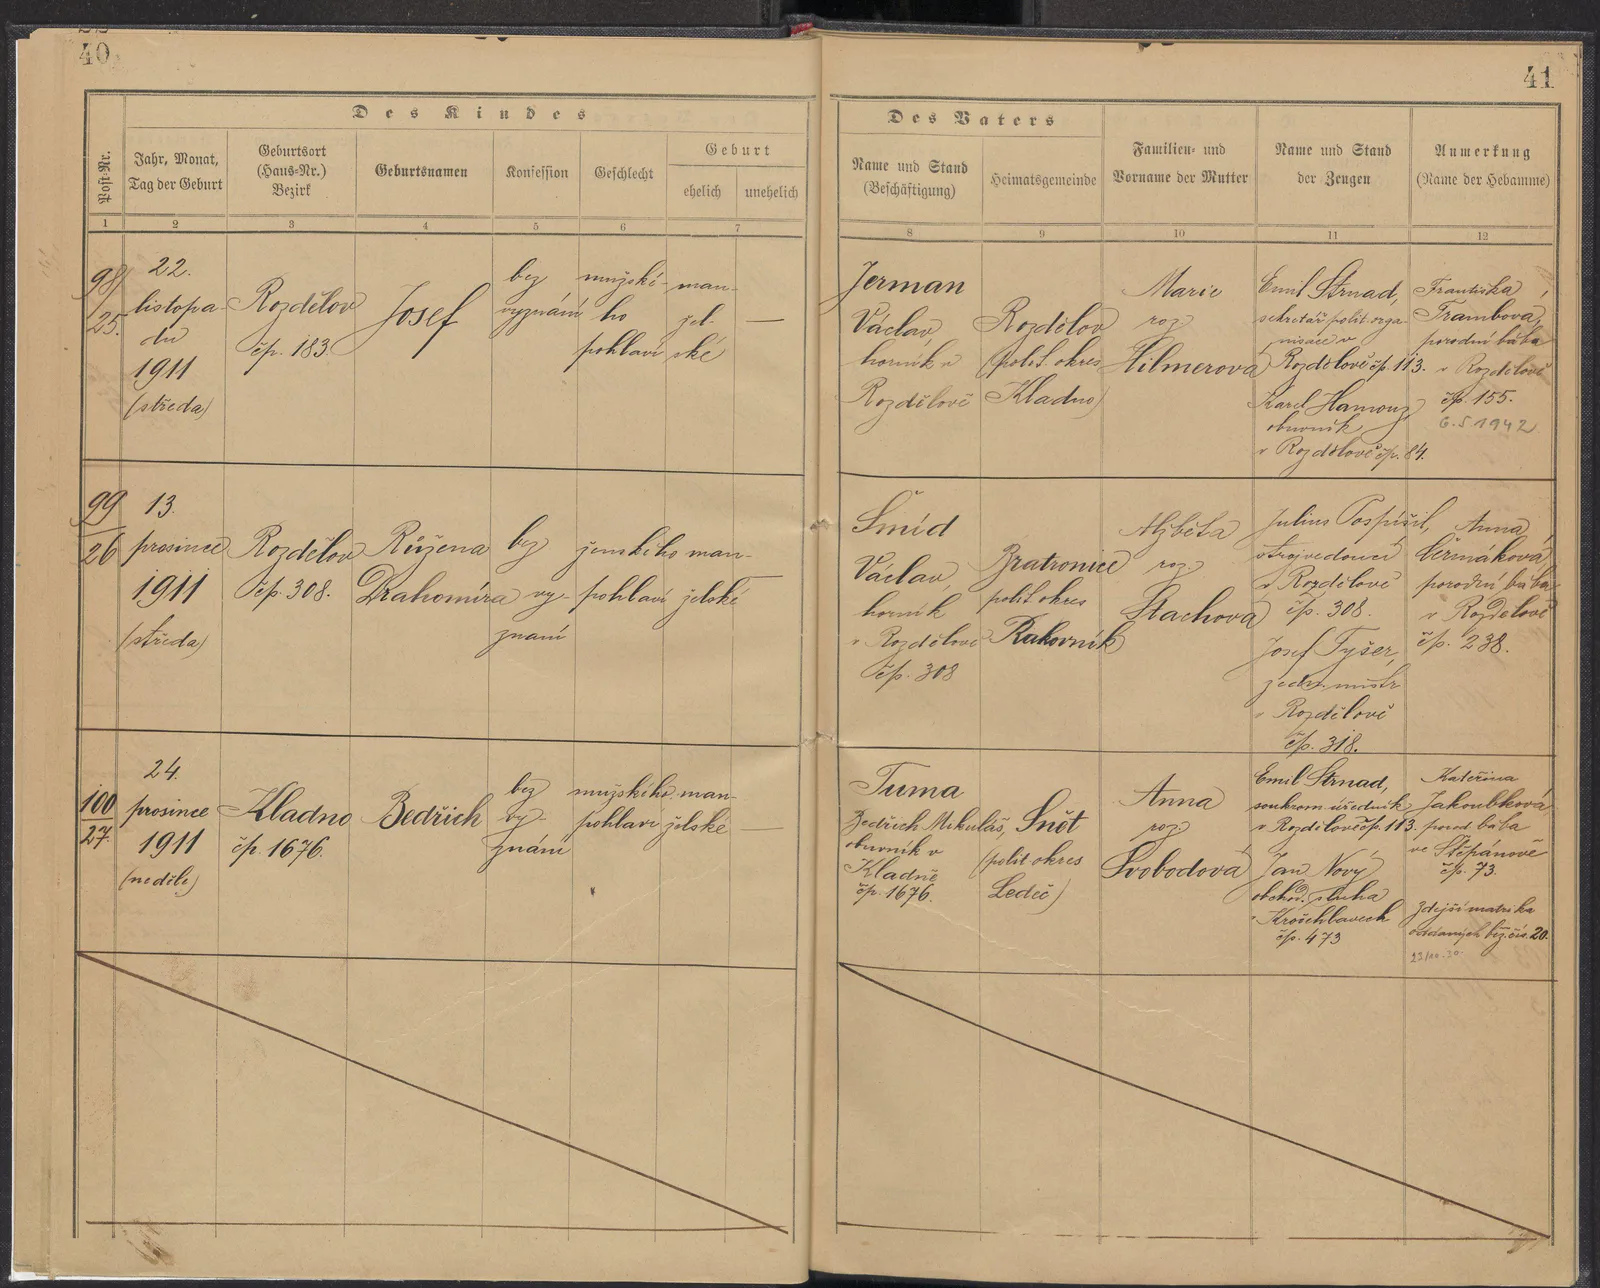 40
Des Kindes
Post-Nr.
Jahr, Monat,
Tag der Geburt
Geburtsort
(Haus-Nr.)
Bezirk
Geburtsnamen
Konfession
Geschlecht
Geburt
ehelich
unehelich
1 2 3 4 5 6 7
98/
25.
22.
listopa-
du
1911
(středa)
Rozdělov
čp. 183.
Josef
bez
vyznání
mužské-
ho
pohlaví
man-
žel-
ské
—
99
26
13.
prosince
1911
(středa)
Rozdělov
čp. 308.
Růžena
Drahomíra
bez
vy-
znání
ženského
pohlaví
man-
želské
—
100
27.
24.
prosince
1911
(neděle)
Kladno
čp. 1676.
Bedřich
bez
vy-
znání
mužského
pohlaví
man-
želské
—
41
Des Vaters
Name und Stand
(Beschäftigung)
Heimatsgemeinde
Familien- und
Vorname der Mutter
Name und Stand
der Zeugen
Anmerkung
(Name der Hebamme)
8 9 10 11 12
Jerman
Václav,
horník v
Rozdělově
Rozdělov
(polit. okres
Kladno)
Marie
roz.
Hilmerová
Emil Strnad,
sekretář polit. orga-
nisace v
Rozdělově čp. 113.
Karel Hamouz,
obuvník
v Rozdělově čp. 84.
Františka
Trambová,
porodní bába
v Rozdělově
čp. 155.
6.5.1942
Šmíd
Václav,
horník
v Rozdělově
čp. 308
Bratronice
polit okres
Rakovník
Alžběta
roz.
Stachová
Julius Pospíšil,
strojvedoucí
v Rozdělově
čp. 308.
Josef Tyšer,
zedn. mistr
v Rozdělově
čp. 318.
Anna
Čermáková,
porodní bába
v Rozdělově
čp. 238.
Tuma
Bedřich Mikuláš,
obuvník v
Kladně
čp. 1676.
Snět
(polit okres
Ledeč)
Anna
roz.
Svobodová
Emil Strnad,
soukrom. úředník
v Rozdělově čp. 113.
Jan Nový
obchod. sluha
v Kročehlavech
čp. 473
Kateřina
Jakoubková,
porod. bába
ve Štěpánově
čp. 73.
Zdejší matrika
oddaných běž. čís. 20.